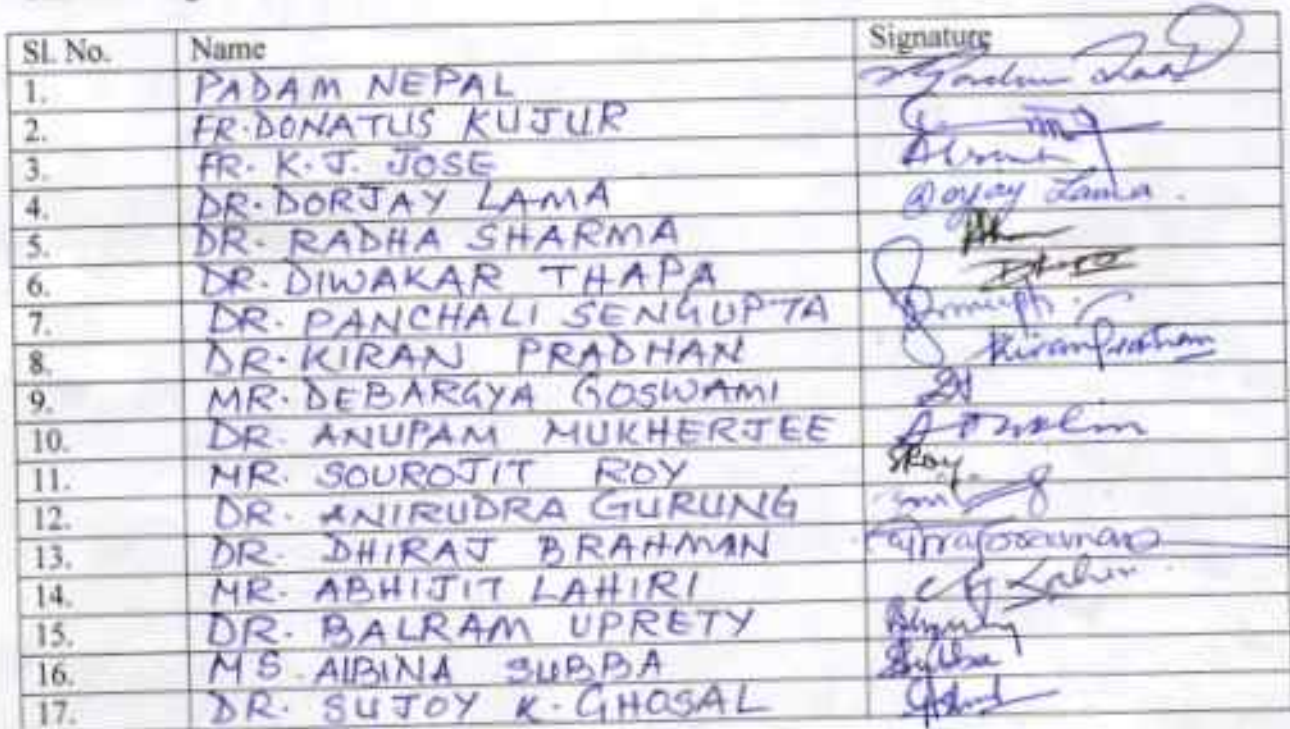 Sl. No. Name Signature
1. PADAM NEPAL
2. FR. DONATUS KUJUR
3. FR. K. J. JOSE Absent
4. DR. DORJAY LAMA Dorjay Lama.
5. DR. RADHA SHARMA
6. DR. DIWAKAR THAPA
7. DR. PANCHALI SENGUPTA
8. DR. KIRAN PRADHAN Kiran Pradhan
9. MR. DEBARGYA GOSWAMI
10. DR. ANUPAM MUKHERJEE
11. MR. SOUROJIT ROY SRoy.
12. DR. ANIRUDRA GURUNG
13. DR. DHIRAJ BRAHMAN
14. MR. ABHIJIT LAHIRI
15. DR. BALRAM UPRETY
16. MS. ALBINA SUBBA
17. DR. SUJOY K. GHOSAL